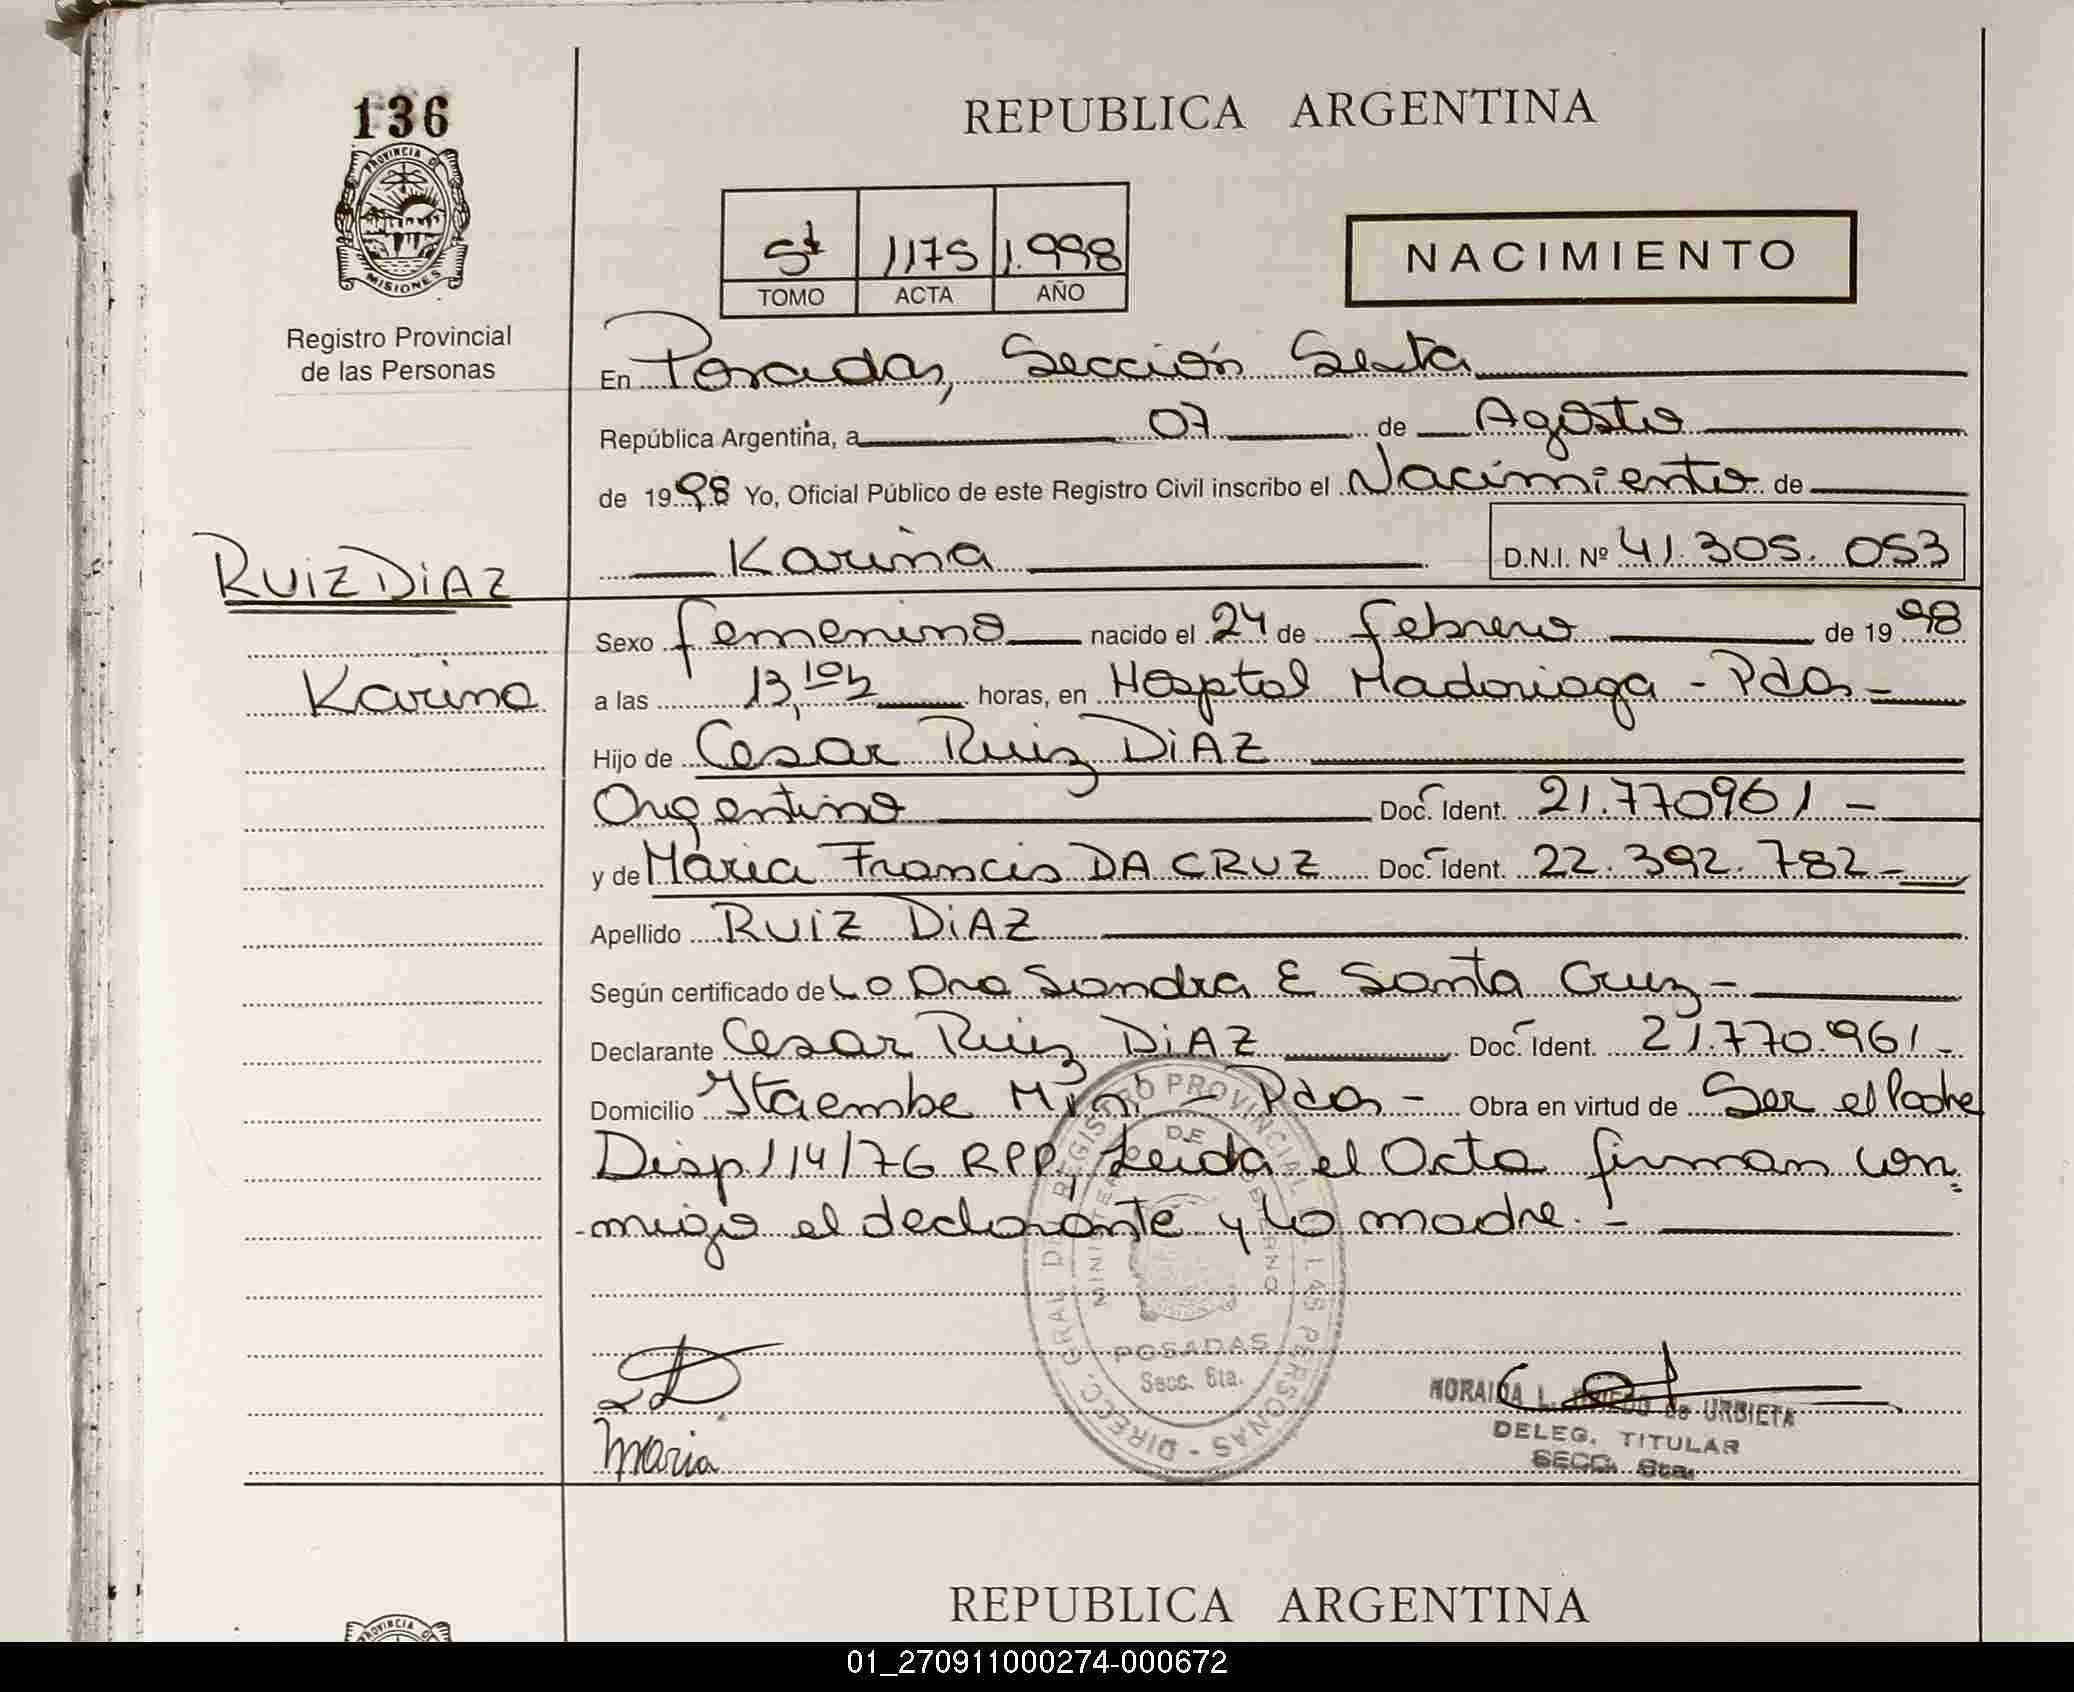 136
PROVINCIA D
MISIONES
Registro Provincial
de las Personas
REPUBLICA ARGENTINA
5t 1175 1.998
TOMO ACTA AÑO
NACIMIENTO
En Posadas, Sección Sexta
República Argentina, a 07 de Agosto
de 1998 Yo, Oficial Público de este Registro Civil inscribo el Nacimiento de
Karina D.N.I. Nº 41.305.053
RUIZ DiAZ
Karina
Sexo femenino nacido el 24 de febrero de 1998
a las 13,10h horas, en Hosptal Madoriaga - Pdas -
Hijo de Cesar Ruiz DiAZ
Argentino Doc. Ident. 21.770961 -
y de Maria Francis DA CRUZ Doc. Ident. 22.392.782 -
Apellido RUIZ DiAZ
Según certificado de La Dra Sandra E Santa Cruz -
Declarante Cesar Ruiz DiAZ Doc. Ident. 21.770.961 -
Domicilio Itaembe Mini - Pdas - Obra en virtud de Ser el Padre
Disp 114/76 RPP, Leida el Acta firman con
migo el declarante y la madre. -
DIRECC. GRAL DEL REGISTRO PROVINCIAL DE LAS PERSONAS -
MINISTERIO DE GOBIERNO
POSADAS
Secc. 6ta.
Maria
NORAIDA L. OVIEDO de URBIETA
DELEG. TITULAR
SECC. 6ta.
REPUBLICA ARGENTINA
PROVINCIA D
01_270911000274-000672